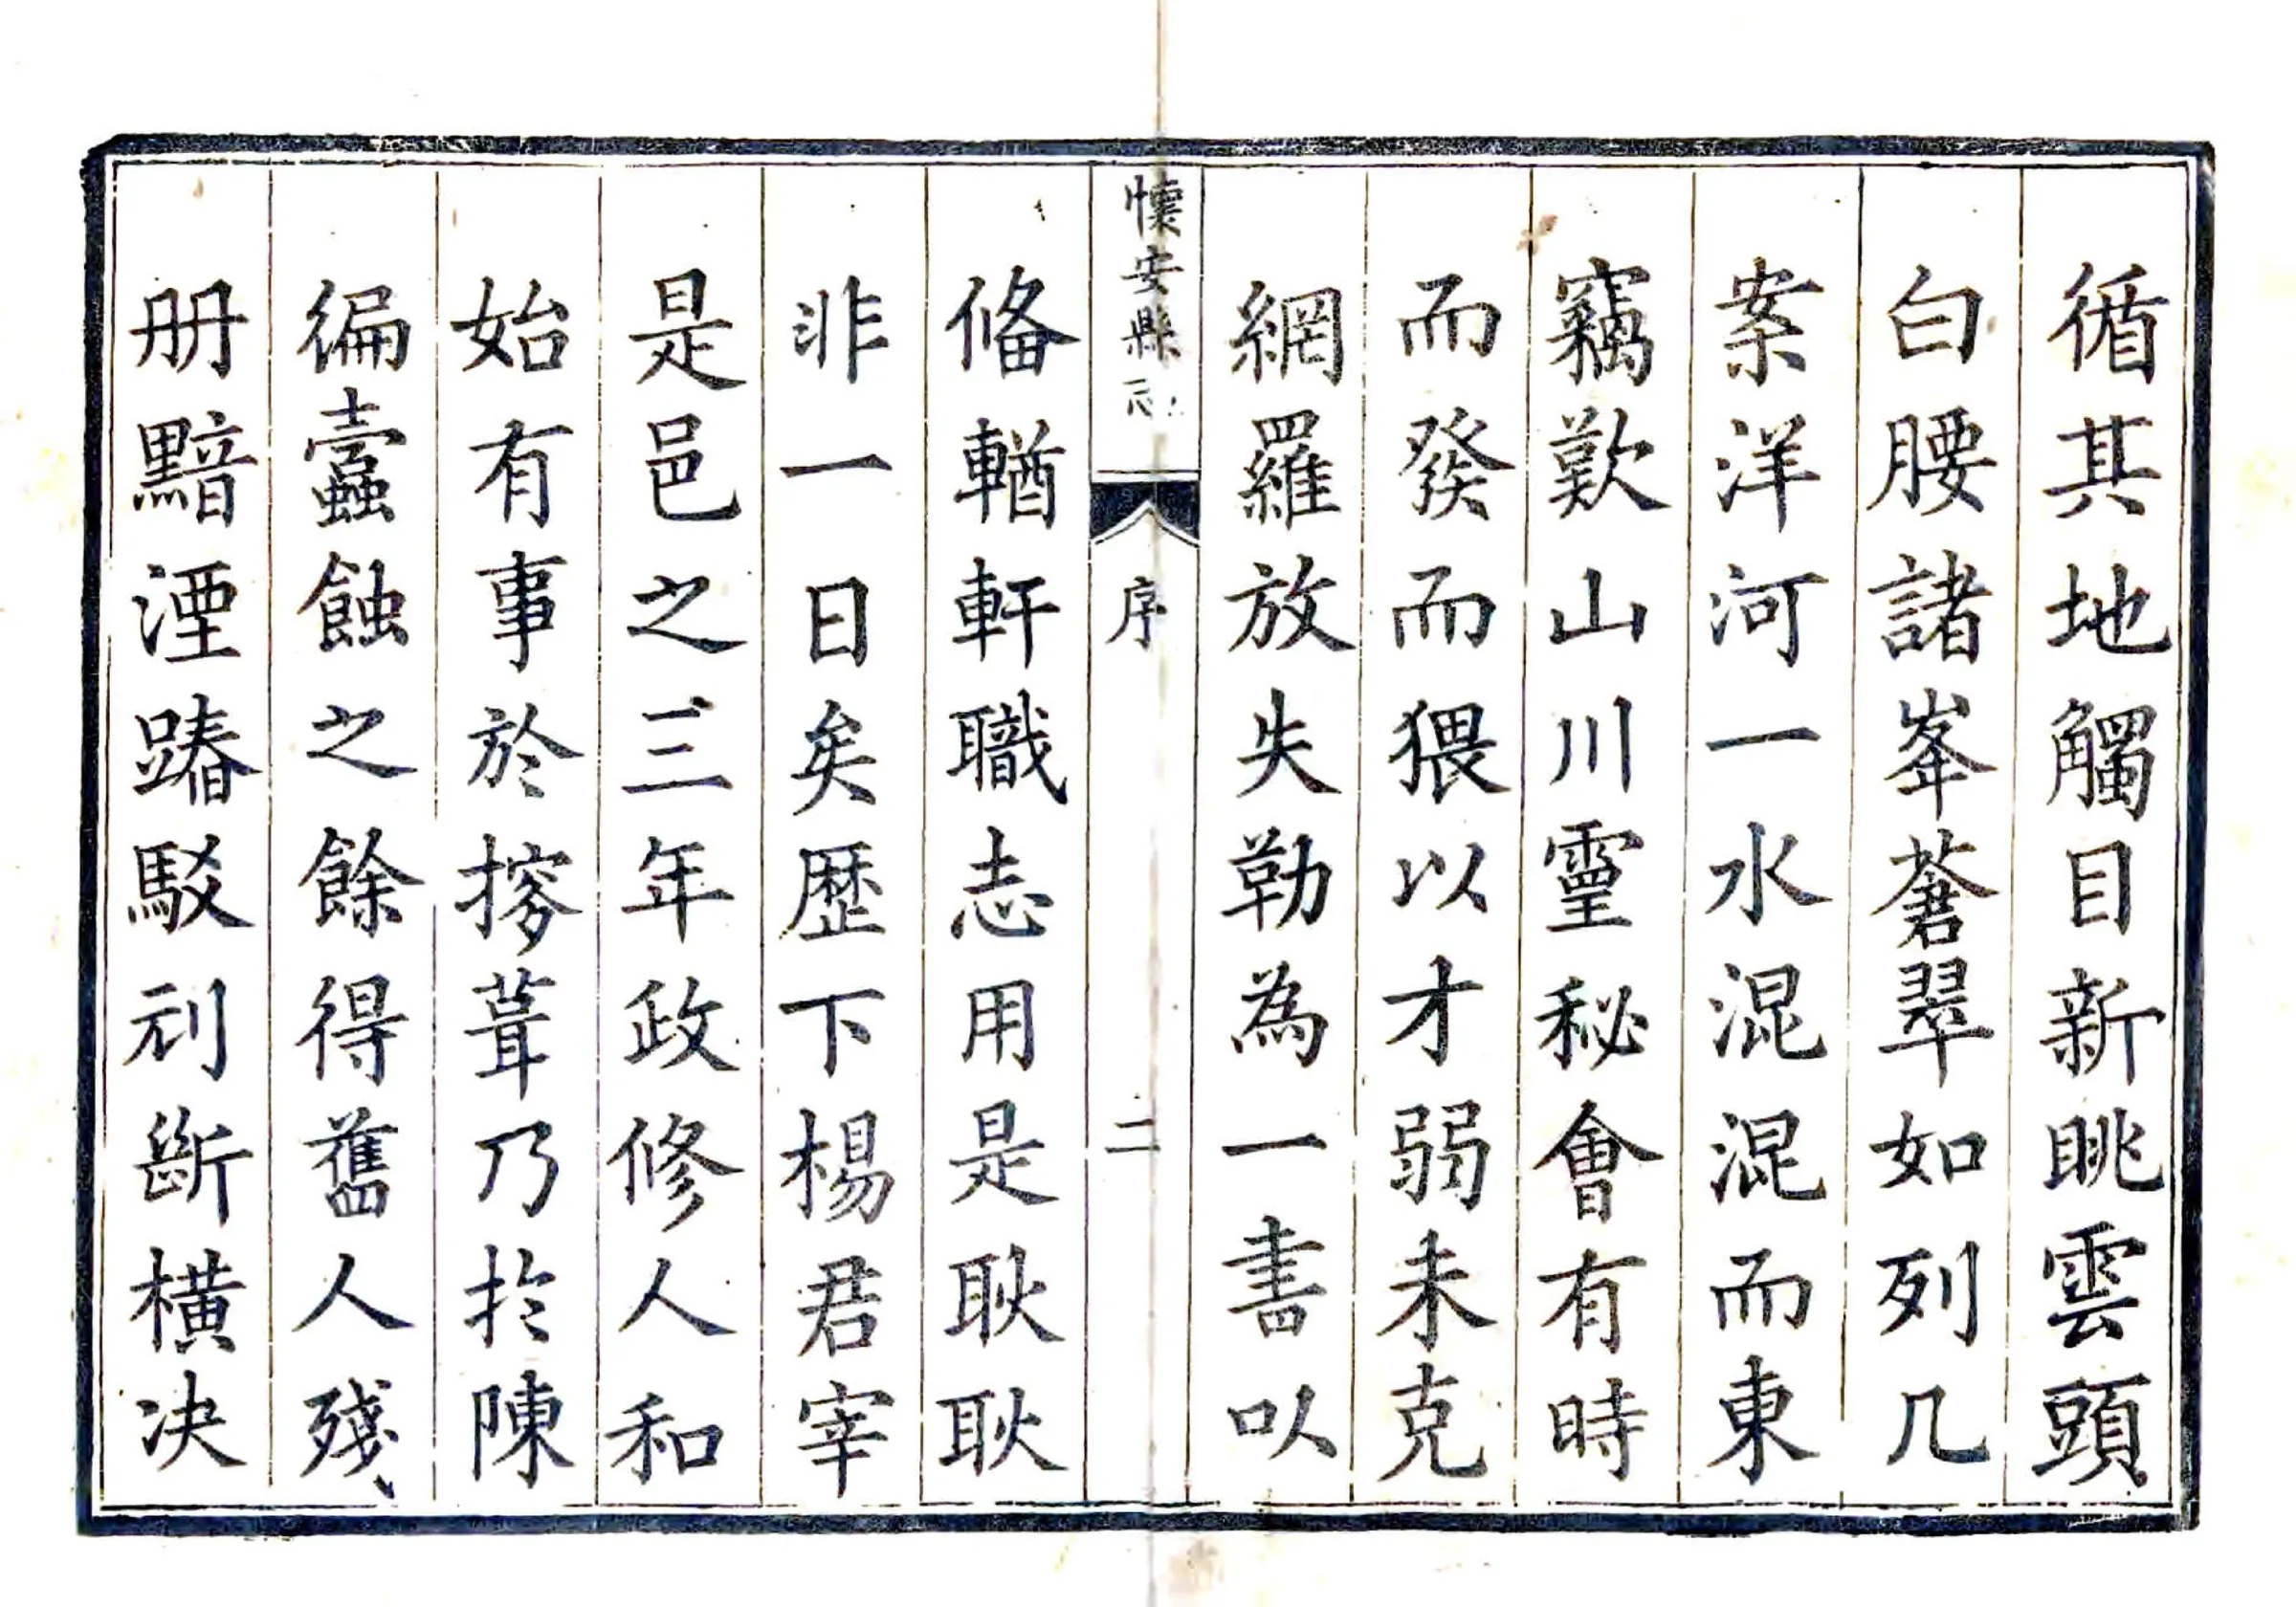 循其地觸目新眺雲頭
白腰諸峯蒼翠如列几
案洋河一水混混而東
竊歎山川靈秘會有時
而發而猥以才弱未克
網羅放失勒為一書以
懷安縣志
序
二
俻輶軒職志用是耿耿
非一日矣歴下楊君宰
是邑之三年政修人和
始有事於撏葺乃於陳
徧蠹蝕之餘得舊人殘
册黯湮踳駁刓斷橫决